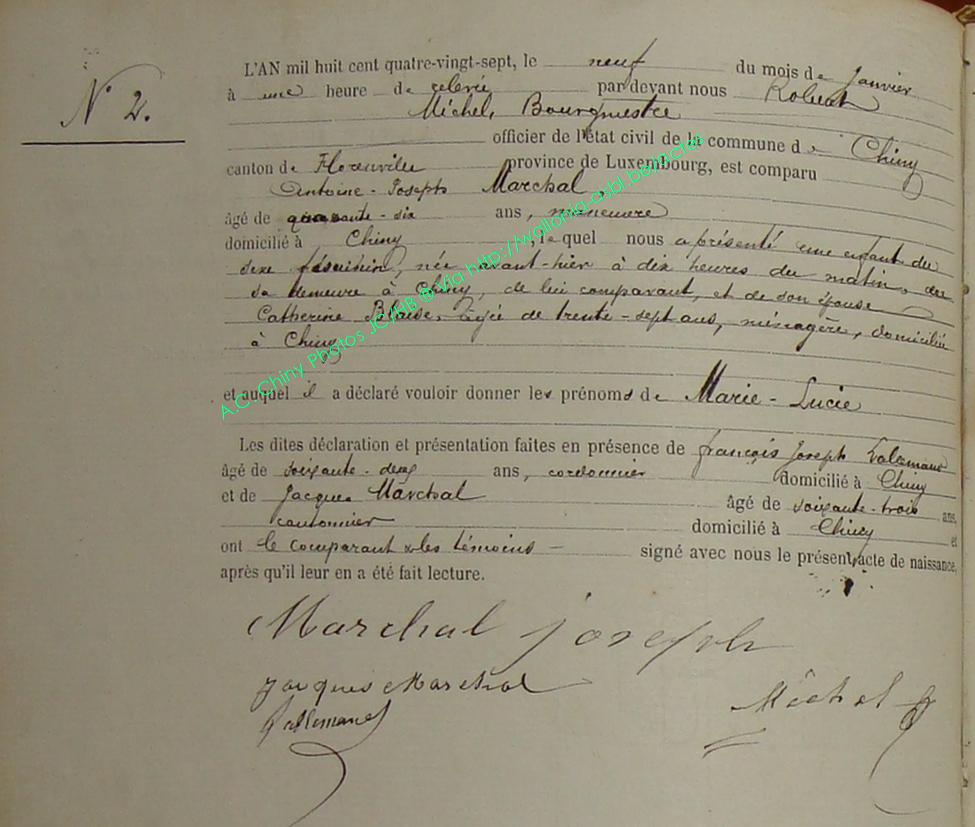 N° 2.
L'AN mil huit cent quatre-vingt-sept, le neuf du mois de Janvier
à une heure de relevée par devant nous
Michel, Bourgmestre
officier de l'état civil de la commune de Chiny
canton de Florenville province de Luxembourg, est comparu
Antoine-Joseph Marchal,
âgé de quarante-six ans, manœuvre
domicilié à Chiny, lequel nous a présenté une enfant du
sexe féminin, née avant-hier à dix heures du matin, en
sa demeure à Chiny, de lui comparant, et de son épouse
Catherine Blaise, âgée de trente-sept ans, ménagère, domiciliée
à Chiny
et auquel il a déclaré vouloir donner les prénoms de Marie-Lucie
Les dites déclaration et présentation faites en présence de françois Joseph
âgé de soixante-deux ans, cordonnier domicilié à Chiny
et de Jacques Marchal âgé de soixante-trois ans,
cantonnier domicilié à Chiny et
ont le comparant & les témoins signé avec nous le présent acte de naissance,
après qu'il leur en a été fait lecture.
Marchal joseph
jacques Marchal
Michel
A.C. Chiny Photos JC/HB @ Via http://wallonia-asbl.be/actes